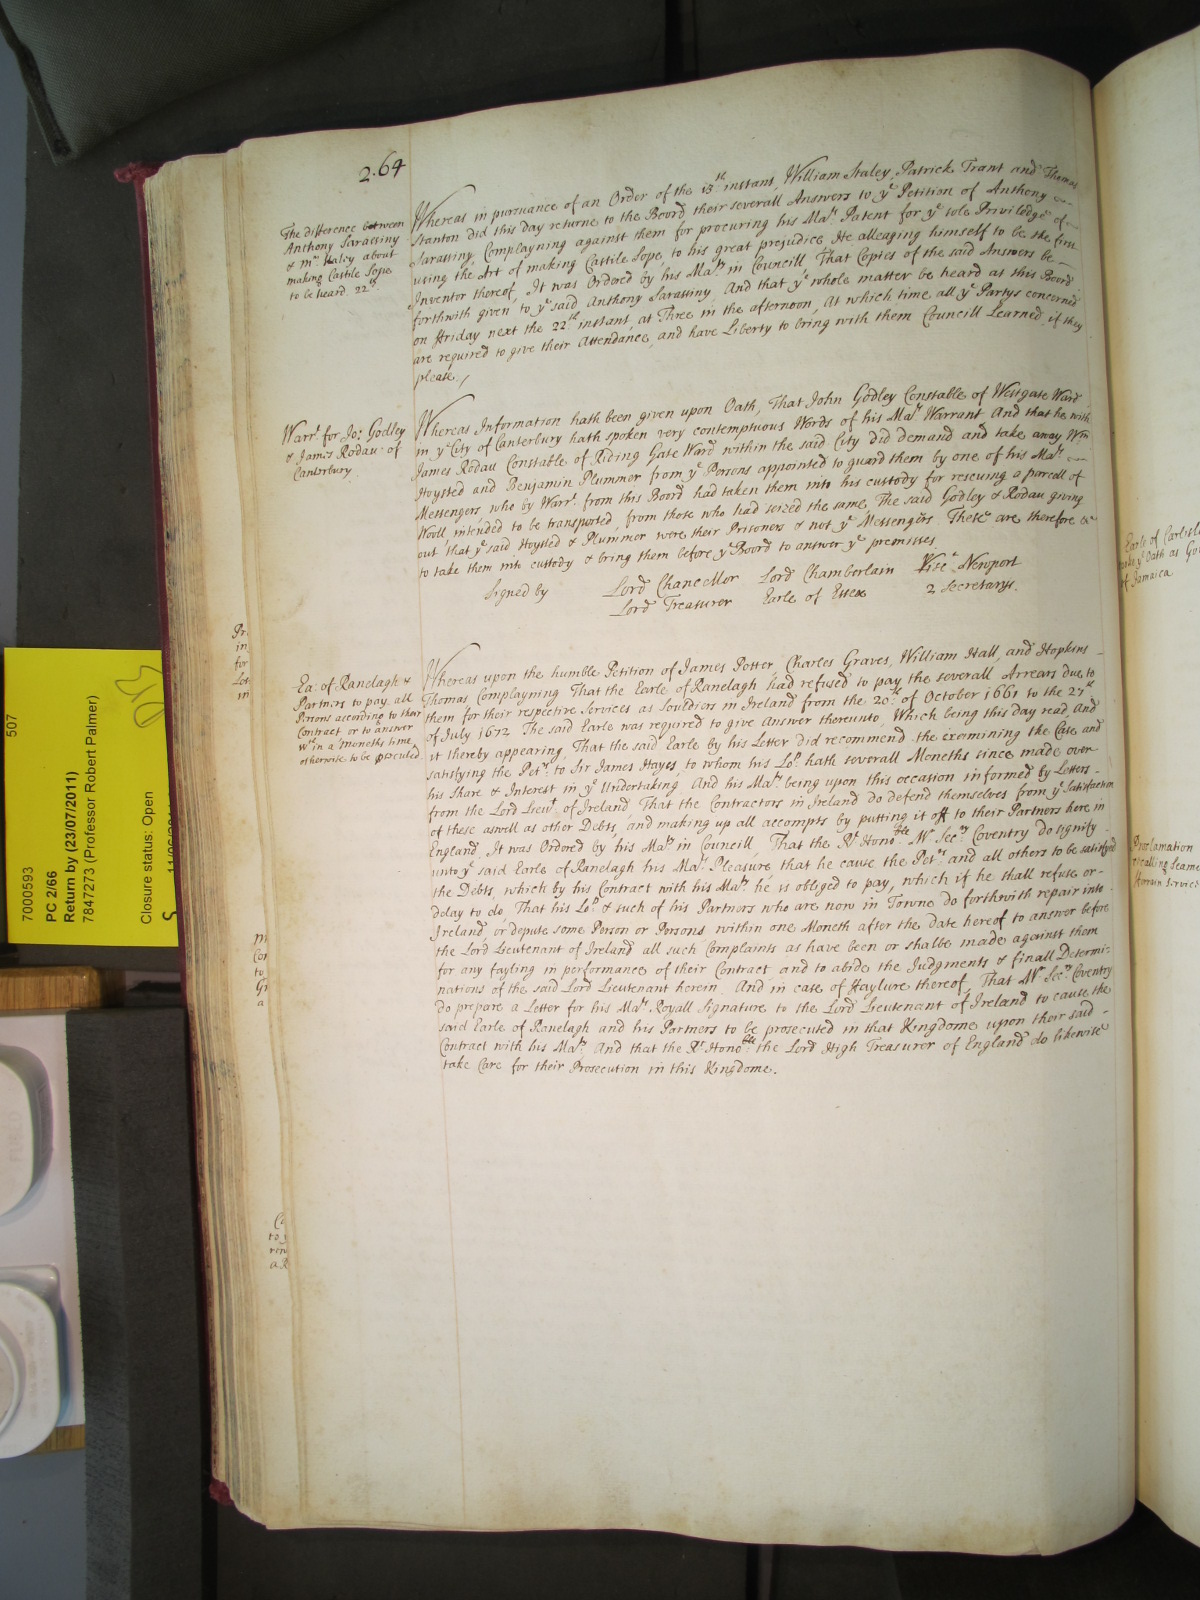 2.64
The difference between
Anthony Sarassiny
& mr. Staley about
making Castile Sope
to be heard. 22th.
Whereas in pursuance of an Order of the 13th instant, William Staley, Patrick Trant and Thomas
Stanton did this day returne to the Board their severall Answers to ye Petition of Anthony
Sarassiny, Complayning against them for procuring his Maty. Patent for ye sole Priviledge of
using the Art of making Castile Sope, to his great prejudice, He alleaging himself to be the first
Inventor thereof, It was Ordered by his Maty. in Councill, That Copies of the said Answers be
forthwith given to ye said Anthony Sarassiny, And that ye whole matter be heard at this Board
on Friday next the 22th instant, at Three in the afternoon, At which time all ye Partys concerned
are required to give their Attendance, and have Liberty to bring with them Councill Learned, if they
please./
Warrt. for Jo: Godley
& James Rodau of
Canterbury
Whereas Information hath been given upon Oath, That John Godley Constable of Westgate Ward
in ye City of Canterbury hath spoken very contemptuous Words of his Maty. Warrant. And that he with
James Rodau Constable of Riding Gate Ward within the said City did demand and take away Wm
Hoysted and Benjamin Plummer from ye Persons appointed to guard them by one of his Maty.
Messengers who by Warrt. from this Board had taken them into his custody for rescuing a parcell of
Wooll, intended to be transported, from those who had seized the same, The said Godley & Rodau giving
out that ye said Hoysted & Plummer were their Prisoners & not ye Messengers. These are therefore &c
to take them into custody & bring them before ye Board to answer ye premisses
Signed by Lord Chancellor Lord Chamberlain Visct. Newport
Lord Treasurer Earle of Essex 2 Secretarys.
Ea: of Ranelagh &
Partners to pay all
Persons according to their
Contract or to answer
wth in a Moneths time
otherwise to be prosecuted
Whereas upon the humble Petition of James Potter, Charles Graves, William Hall, and Hopkins
Thomas Complayning That the Earle of Ranelagh had refused to pay the severall Arrears Due to
them for their respective Services as Souldiers in Ireland from the 20th of October 1661 to the 27th
of July 1672 The said Earle was required to give Answer thereunto, Which being this day read And
it thereby appearing, That the said Earle by his Letter did recommend the examining the Case and
satisfying the Petrs. to Sir James Hayes, to whom his Lop. hath severall Moneths since made over
his Share & Interest in ye Undertaking. And his Maty. being upon this occasion informed by Letters
from the Lord Lieut. of Ireland That the Contractors in Ireland do defend themselves from ye Satisfaction
of these aswell as other Debts, and making up all accompts by putting it off to their Partners here in
England, It was Ordered by his Maty. in Councill, That the Rt. Honoble. Mr. Secry Coventry do signify
unto ye said Earle of Ranelagh his Maty. Pleasure, that he cause the Petrs. and all others to be satisfyed
the Debts, which by his Contract with his Maty. he is obliged to pay, which if he shall refuse or
delay to do, That his Lop. & such of his Partners who are now in Towne do forthwith repair into
Ireland, or depute some Person or Persons within one Moneth after the date hereof to answer before
the Lord Lieutenant of Ireland all such Complaints as have been or shalbe made against them
for any fayling in performance of their Contract and to abide the Judgments & finall Determi-
nations of the said Lord Lieutenant herein. And in case of Faylure thereof, That Mr. Secry Coventry
do prepare a Letter for his Maty. Royall Signature to the Lord Lieutenant of Ireland to cause the
said Earle of Ranelagh and his Partners to be prosecuted in that Kingdome upon their said
Contract with his Maty. And that the Rt. Honoble. the Lord High Treasurer of England do likewise
take Care for their Prosecution in this Kingdome.
Earle of Carlisle
Oath as Go
of Jamaica
Proclamation
recalling Seame
Forrain Service
7000593
507
PC 2/66
Return by (23/07/2011)
7847273 (Professor Robert Palmer)
Closure status: Open